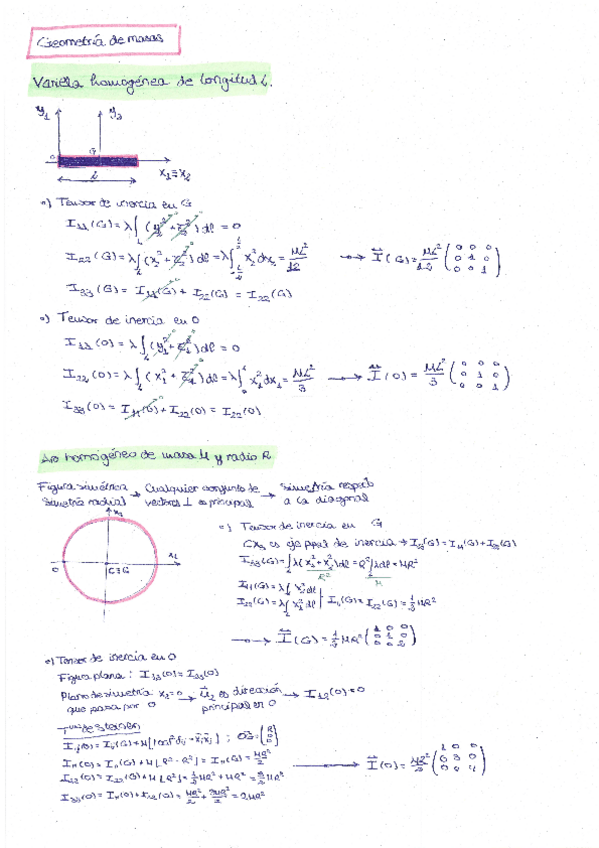 Geometría de masas
Varilla homogénea de longitud L.
y₁ y₂
O G
x₁≡x₂
L
o) Tensor de inercia en G
I₁₁(G) = λ∫_L (y₂² + z₂²) dl = 0
I₂₂(G) = λ∫_L (x₂² + z₂²) dl = λ∫_{-L/2}^{L/2} x₂² dx₂ = ML²/12 → I(G) = ML²/12 (0 0 0; 0 1 0; 0 0 1)
I₃₃(G) = I₁₁(G) + I₂₂(G) = I₂₂(G)
o) Tensor de inercia en O
I₁₁(O) = λ∫_L (y₁² + z₁²) dl = 0
I₂₂(O) = λ∫_L (x₁² + z₁²) dl = λ∫₀^L x₁² dx₁ = ML²/3 → I(O) = ML²/3 (0 0 0; 0 1 0; 0 0 1)
I₃₃(O) = I₁₁(O) + I₂₂(O) = I₂₂(O)
Aro homogéneo de masa M y radio R
Figura simétrica → Cualquier conjunto de → Simetría respecto
simetría radial vectores ⊥ es principal a la diagonal
O C≡G
o) Tensor de inercia en G
Cx₃ es eje ppal de inercia → I₃₃(G) = I₁₁(G) + I₂₂(G)
I₃₃(G) = ∫_L λ(x₁² + x₂²) dl = R²∫λdl = MR²
R² M
I₁₁(G) = λ∫_L x₂² dl
I₂₂(G) = λ∫_L x₁² dl I₁₁(G) = I₂₂(G) = ½MR²
→ I(G) = ½MR² (1 0 0; 0 1 0; 0 0 2)
o) Tensor de inercia en O
Figura plana:
Plano de simetría x₂=0 → u₂ es dirección → I₁₂(O) = 0
que pasa por O principal en O
de Steiner
I₁₁(O) = I₁₁(G) + M[R² - R²] = I₁₁(G) = MR²/2
I₂₂(O) = I₂₂(G) + M[R²] = ½MR² + MR² = 3/2 MR² → I(O) = MR²/2 (1 0 0; 0 3 0; 0 0 4)
I₃₃(O) = I₁₁(O) + I₂₂(O) = MR²/2 + 3MR²/2 = 2MR²